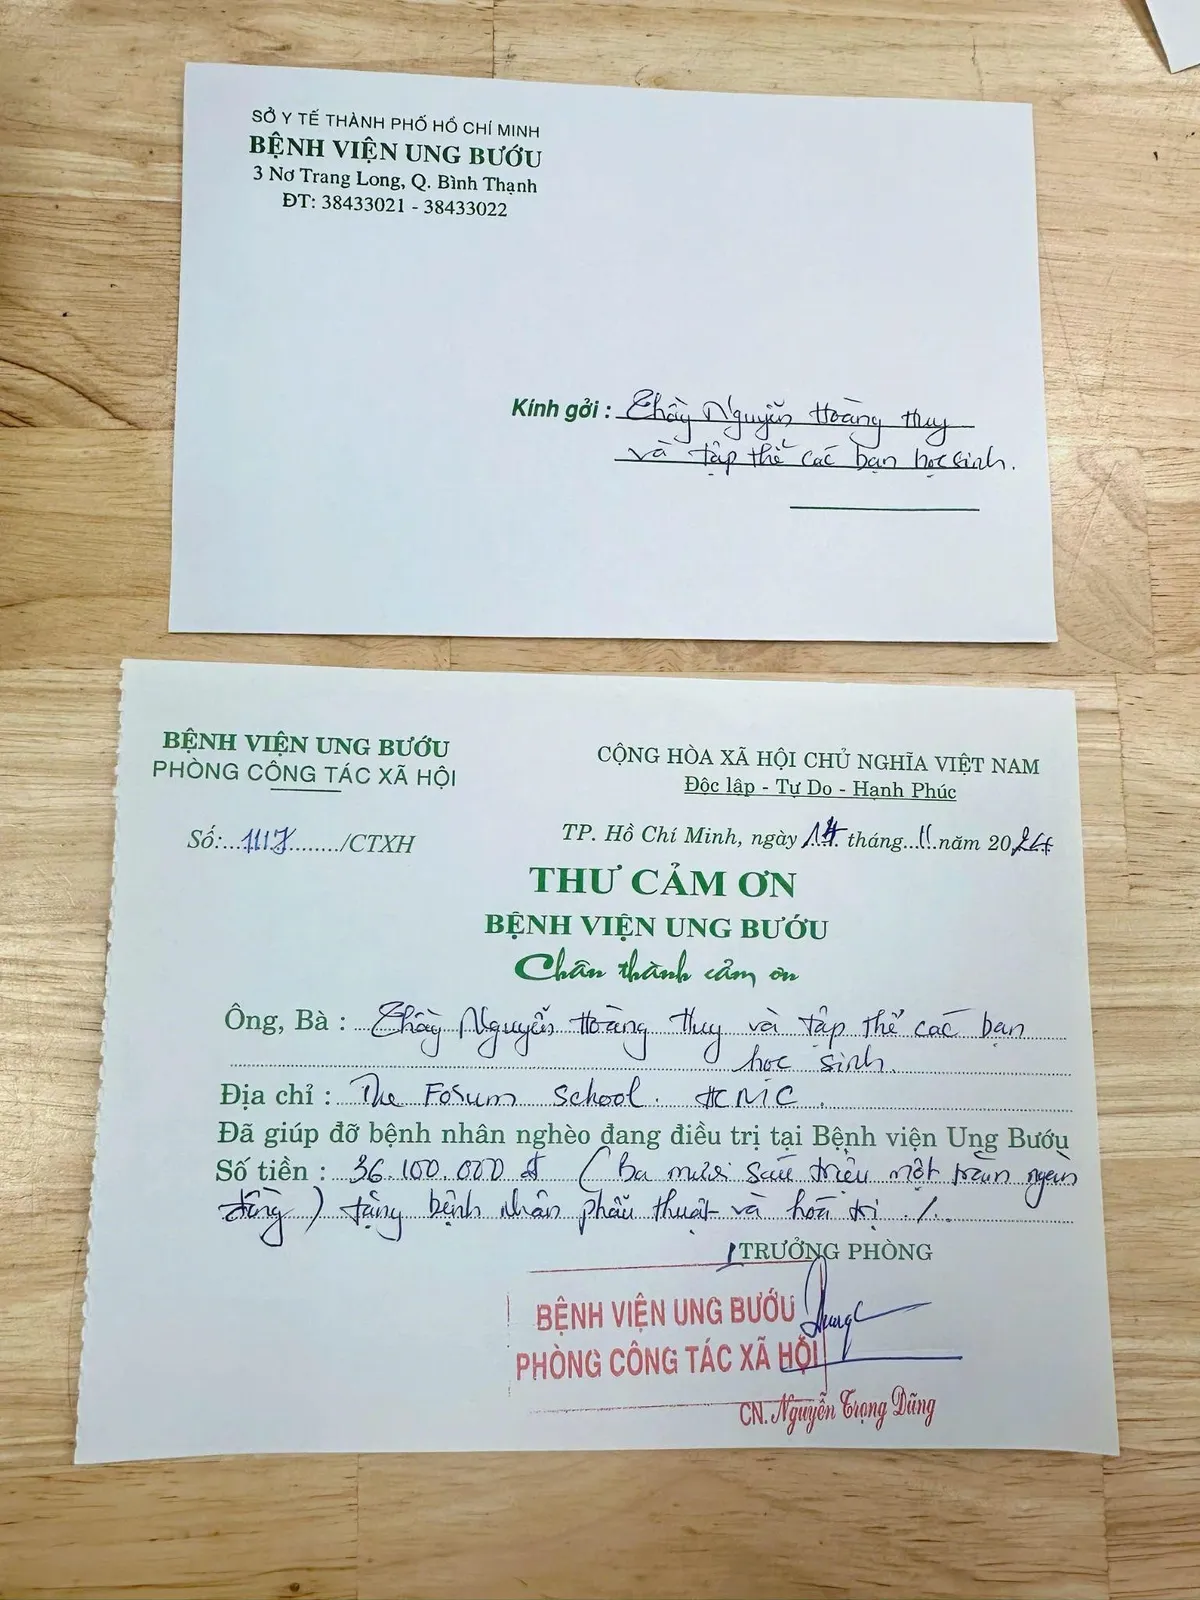 SỞ Y TẾ THÀNH PHỐ HỒ CHÍ MINH
BỆNH VIỆN UNG BƯỚU
3 Nơ Trang Long, Q. Bình Thạnh
ĐT: 38433021 - 38433022
Kính gởi : Thầy Nguyễn Hoàng Huy
và tập thể các bạn học sinh.
BỆNH VIỆN UNG BƯỚU
PHÒNG CÔNG TÁC XÃ HỘI
CỘNG HÒA XÃ HỘI CHỦ NGHĨA VIỆT NAM
Độc lập - Tự Do - Hạnh Phúc
Số:............/CTXH
TP. Hồ Chí Minh, ngày 14 tháng 11 năm 2024
THƯ CẢM ƠN
BỆNH VIỆN UNG BƯỚU
Chân thành cảm ơn
Ông, Bà : Thầy Nguyễn Hoàng Huy và tập thể các bạn
học sinh.
Địa chỉ : The Forum School. HCMC.
Đã giúp đỡ bệnh nhân nghèo đang điều trị tại Bệnh viện Ung Bướu
Số tiền : 36.100.000 đ (Ba mươi sáu triệu một trăm ngàn
đồng) tặng bệnh nhân phẫu thuật và hoá trị ./.
TRƯỞNG PHÒNG
BỆNH VIỆN UNG BƯỚU
PHÒNG CÔNG TÁC XÃ HỘI
CN. Nguyễn Trọng Dũng